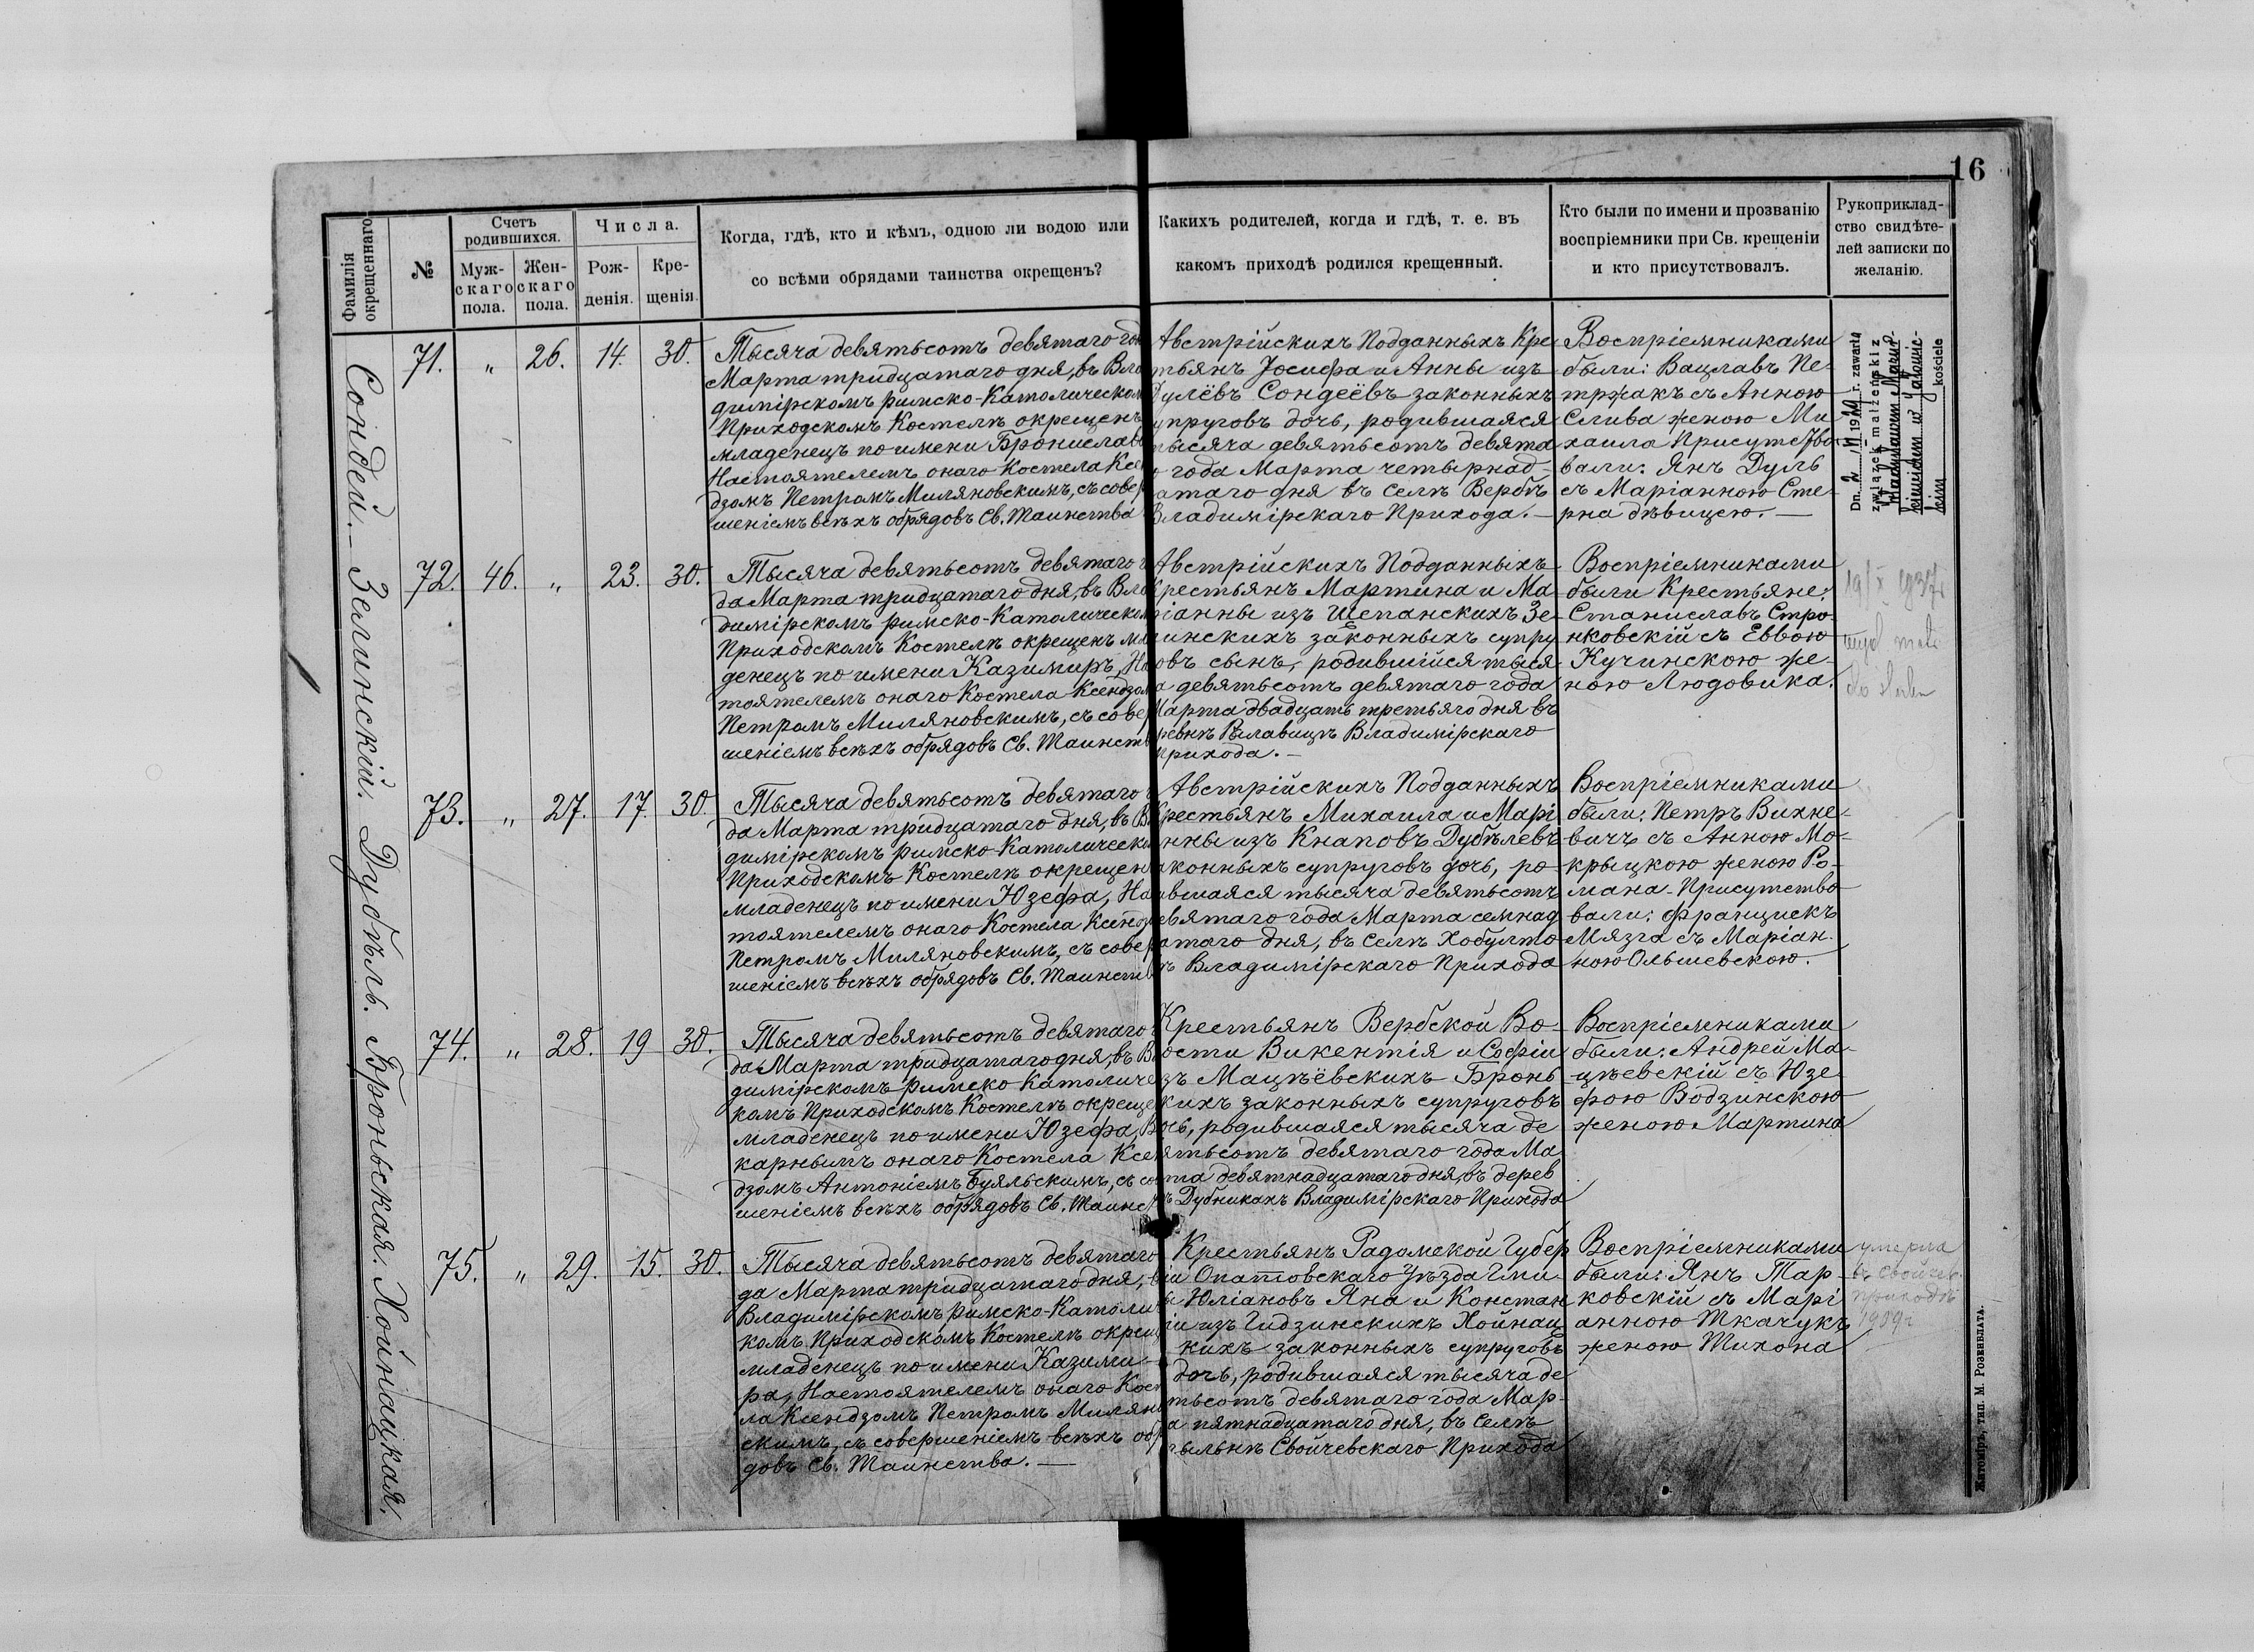 16
Фамилія
окрещеннаго
№
Счетъ
родившихся.
Муж-
скаго
пола.
Жен-
скаго
пола.
Числа.
Рож-
денія.
Кре-
щенія.
Когда, гдѣ, кто и кѣмъ, одною ли водою или
со всѣми обрядами таинства окрещенъ?
Какихъ родителей, когда и гдѣ, т. е. въ
какомъ приходѣ родился крещенный.
Кто были по имени и прозванію
воспріемники при Св. крещеніи
и кто присутствовалъ.
Рукоприклад-
ство свидѣте-
лей записки по
желанію.
Сондей.
71. „ 26. 14. 30.
Тысяча девятьсотъ девятаго го
Марта тридцатаго дня, въ Вла
димірскомъ римско-Католическом
Приходскомъ Костелѣ окрещенъ
младенецъ по имени Бронислав
Настоятелемъ онаго Костела Ксе
дзомъ Петромъ Миляновскимъ, съ совер
шеніемъ всѣхъ обрядовъ Св. Таинства
Австрійскихъ Подданныхъ Кре
тьянъ Іосифа и Анны изъ
Дулёвъ Сондеёвъ законныхъ
упруговъ дочь, родившаяся
тысяча девятьсотъ девята
о года Марта четырнад-
атаго дня въ селѣ Вербѣ
Владимірскаго Прихода.—
Воспріемниками
были: Вацлавъ Пе-
тржакъ съ Анною
Слива женою Ми-
хаила Присутство
вали: Янъ Дуль
съ Маріанною Сте-
рна дѣвицею.—
Dn. 2 VI 1929 r. zawarła
związek małżeński z
Władysławem
w
kościele
Зелинскій.
72. 46. „ 23. 30.
Тысяча девятьсотъ девятаго г
да Марта тридцатаго дня, въ Вла
димірскомъ римско-Католическом
Приходскомъ Костелѣ окрещенъ мла
денецъ по имени Казимиръ, На
тоятелемъ онаго Костела Ксендзом
Петромъ Миляновскимъ, съ совер
шеніемъ всѣхъ обрядовъ Св. Таинств
Австрійскихъ Подданныхъ
Крестьянъ Мартина и Ма
ріанны изъ Щепанскихъ Зе-
инскихъ законныхъ супру
овъ сынъ, родившійся тыся
а девятьсотъ девятаго года
Марта двадцать третьяго дня въ
ревнѣ Рылавицѣ Владимірскаго
прихода.—
Воспріемниками
были Крестьяне:
Станиславъ Стро-
нковскій съ Еввою
Кучинскою же-
ною Людовика.
19/X 1937
Дубѣль.
73. „ 27. 17. 30.
Тысяча девятьсотъ девятаго г
да Марта тридцатаго дня, въ В
димірскомъ римско-Католическо
Приходскомъ Костелѣ окрещен
младенецъ по имени Юзефа, На
тоятелемъ онаго Костела Ксендз
Петромъ Миляновскимъ, съ совер
шеніемъ всѣхъ обрядовъ Св. Таинств
Австрійскихъ Подданныхъ
Крестьянъ Михаила и Марі
нны изъ Кнаповъ Дубѣлевъ
аконныхъ супруговъ дочь, ро-
ившаяся тысяча девятьсотъ
евятаго года Марта семнад
атаго дня, въ селѣ Хобулто
ѣ Владимірскаго Прихода
Воспріемниками
были: Петръ Вихне-
вичъ съ Анною Мо-
крыцкою женою Ро-
мана. Присутство
вали: Францискъ
Мязга съ Маріан
ною Ольшевскою.
Броньская.
74. „ 28. 19 30.
Тысяча девятьсотъ девятаго г
да Марта тридцатаго дня, въ В
димірскомъ Римско Католиче
комъ Приходскомъ Костелѣ окреще
младенецъ по имени Юзефа, В
карнымъ онаго Костела Ксе
дзомъ Антоніемъ Буяльскимъ, съ со
шеніемъ всѣхъ обрядовъ Св. Таинс
Крестьянъ Вербской Во-
ости Викентія и Софіи
зъ Мацѣёвскихъ Бронь
кихъ законныхъ супруговъ
очь, родившаяся тысяча де
ятьсотъ девятаго года Ма
та девятнадцатаго дня, въ дерев
ѣ Дубникахъ Владимірскаго Прихода
Воспріемниками
были: Андрей Ма-
цѣевскій съ Юзе-
фою Водзинскою
женою Мартина
Хойнацкая.
75. „ 29. 15. 30.
Тысяча девятьсотъ девятаго
да Марта тридцатаго дня, в
Владимірскомъ римско-Католи
комъ Приходскомъ Костелѣ окрещ
младенецъ по имени Казими-
ра, Настоятелемъ онаго Кост
ла Ксендзомъ Петромъ Милян
скимъ, съ совершеніемъ всѣхъ обр
довъ Св. Таинства.—
Крестьянъ Радомской Губер
іи Опатовскаго Уѣзда Гми-
ы Юліановъ Яна и Констан
іи изъ Гидзинскихъ Хойнац
кихъ законныхъ супруговъ
дочь, родившаяся тысяча де
тьсотъ девятаго года Мар-
а пятнадцатаго дня, въ селѣ
гыльнѣ Свойчевскаго Прихода
Воспріемниками
были: Янъ Тар-
ковскій съ Марі
анною Ткачукъ
женою Тихона
умерла
въ Свойчев.
приходѣ
1909 г
Житоміръ, тип. М. Розенблата.